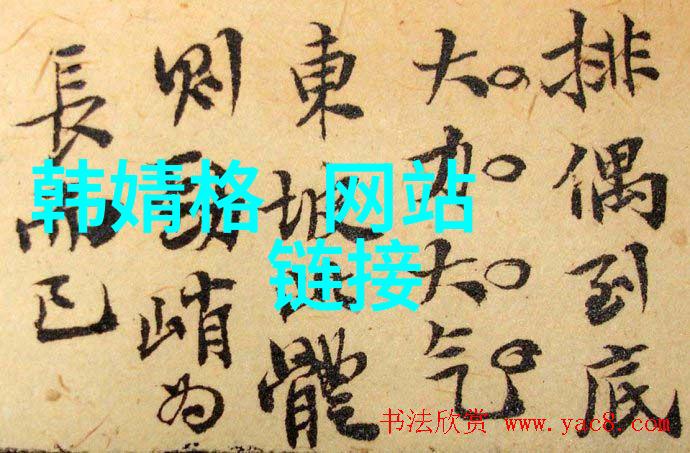 排偶到底
大。力。大。气。
東坡體
則勁峭為
長而已
韩婧格 网站
链接
书法欣赏 www.yac8.com